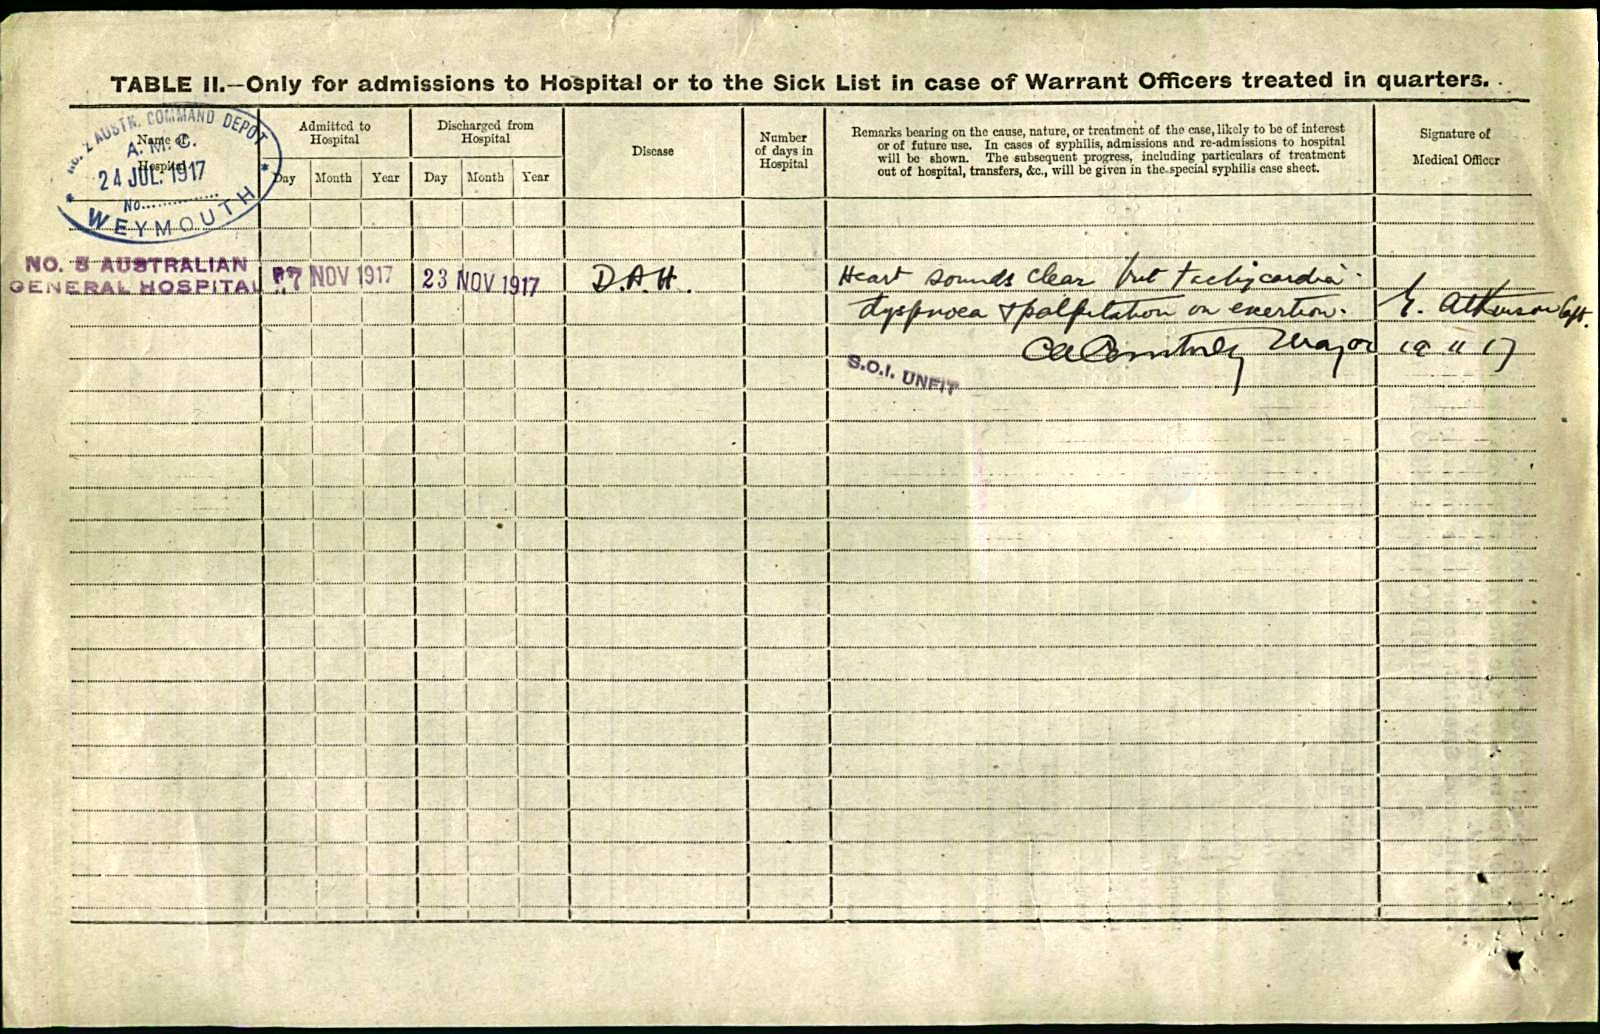 TABLE II.—Only for admissions to Hospital or to the Sick List in case of Warrant Officers treated in quarters.
Name of
Hospital
Admitted to
Hospital
Day Month Year
Discharged from
Hospital
Day Month Year
Disease
Number
of days in
Hospital
Remarks bearing on the cause, nature, or treatment of the case, likely to be of interest
or of future use. In cases of syphilis, admissions and re-admissions to hospital
will be shown. The subsequent progress, including particulars of treatment
out of hospital, transfers, &c., will be given in the special syphilis case sheet.
Signature of
Medical Officer
No. 2 AUSTN. COMMAND DEPOT
A. M. C.
24 JUL. 1917
No..............
WEYMOUTH
NO. 5 AUSTRALIAN
GENERAL HOSPITAL
7 NOV 1917
23 NOV 1917
D.A.H.
Heart sounds clear but tachycardia.
dyspnoea & palpitation on exertion.
Atkinson Capt.
Major
S.O.I. UNFIT